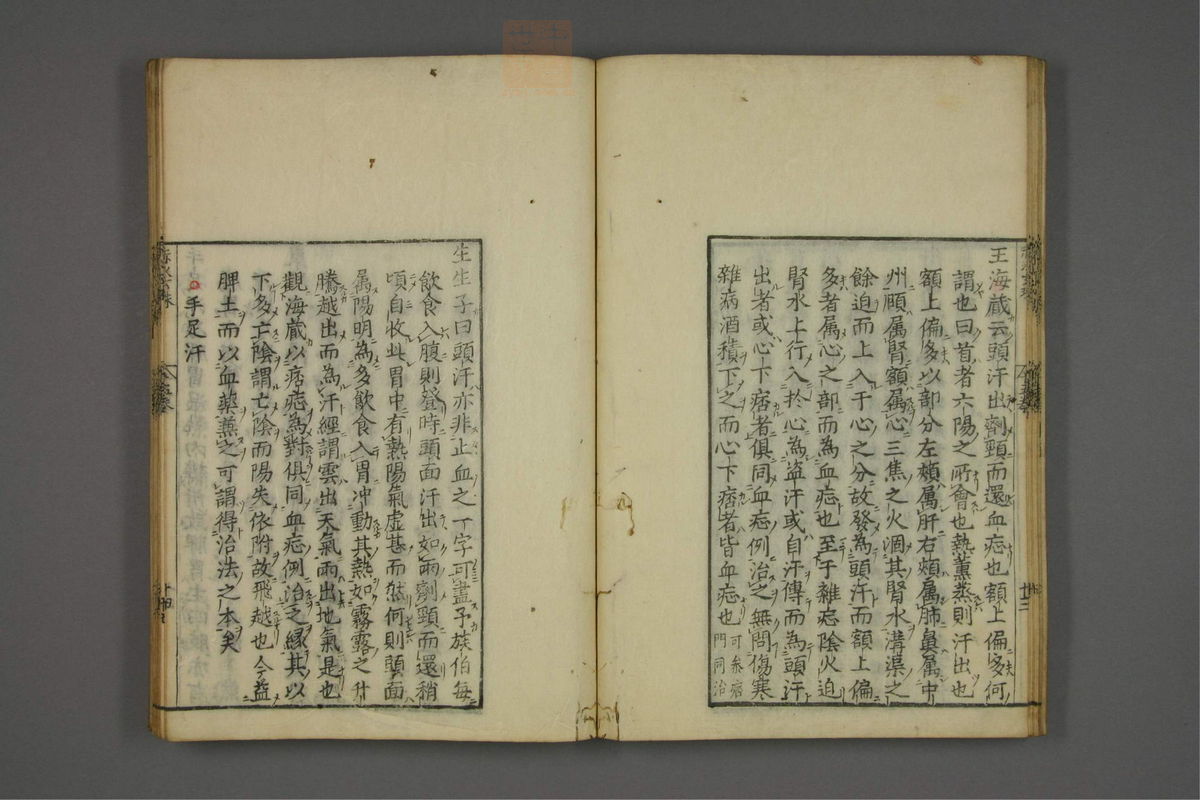 王海藏云頭汗出劑頸而還血症也額上偏多何
謂也曰首者六陽之所會也熱薰蒸則汗出也
額上偏多以部分左頰属肝右頰属肺鼻属中
州頤属腎額属心三焦之火涸其腎水溝渠之
餘迫而上入于心之分故發為頭汗而額上偏
多者属心之部而為血症也至于雜症陰火迫
腎水上行入於心為盗汗或自汗傳而為頭汗
出者或心下痞者俱同血症例治之無問傷寒
雜病酒積下之而心下痞者皆血症也
可参痞
門同治
廿三
生生子曰頭汗亦非止血之一字可盡予族伯每
飲食入腹則登時頭面汗出如雨劑頸而還稍
頃自收此胃中有熱陽氣虚甚而然何則頭面
属陽明為多飲食入胃冲動其熱如霧露之升
騰越出而為汗經謂雲出天氣雨出地氣是也
觀海藏以痞症為對俱同血症例治之縁其以
下多亡陰謂亡陰而陽失依附故飛越也今益
脾土而以血藥兼之可謂得治法之本矣
手足汗